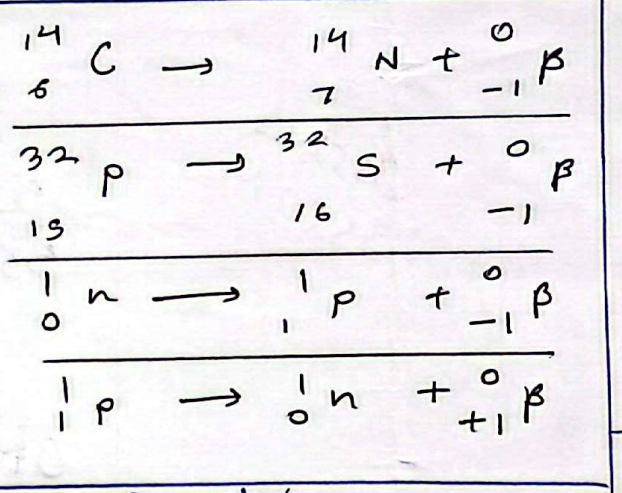 ¹⁴₆ C → ¹⁴₇ N + ⁰₋₁ β
³²₁₅ P → ³²₁₆ S + ⁰₋₁ β
¹₀ n → ¹₁ p + ⁰₋₁ β
¹₁ p → ¹₀ n + ⁰₊₁ β